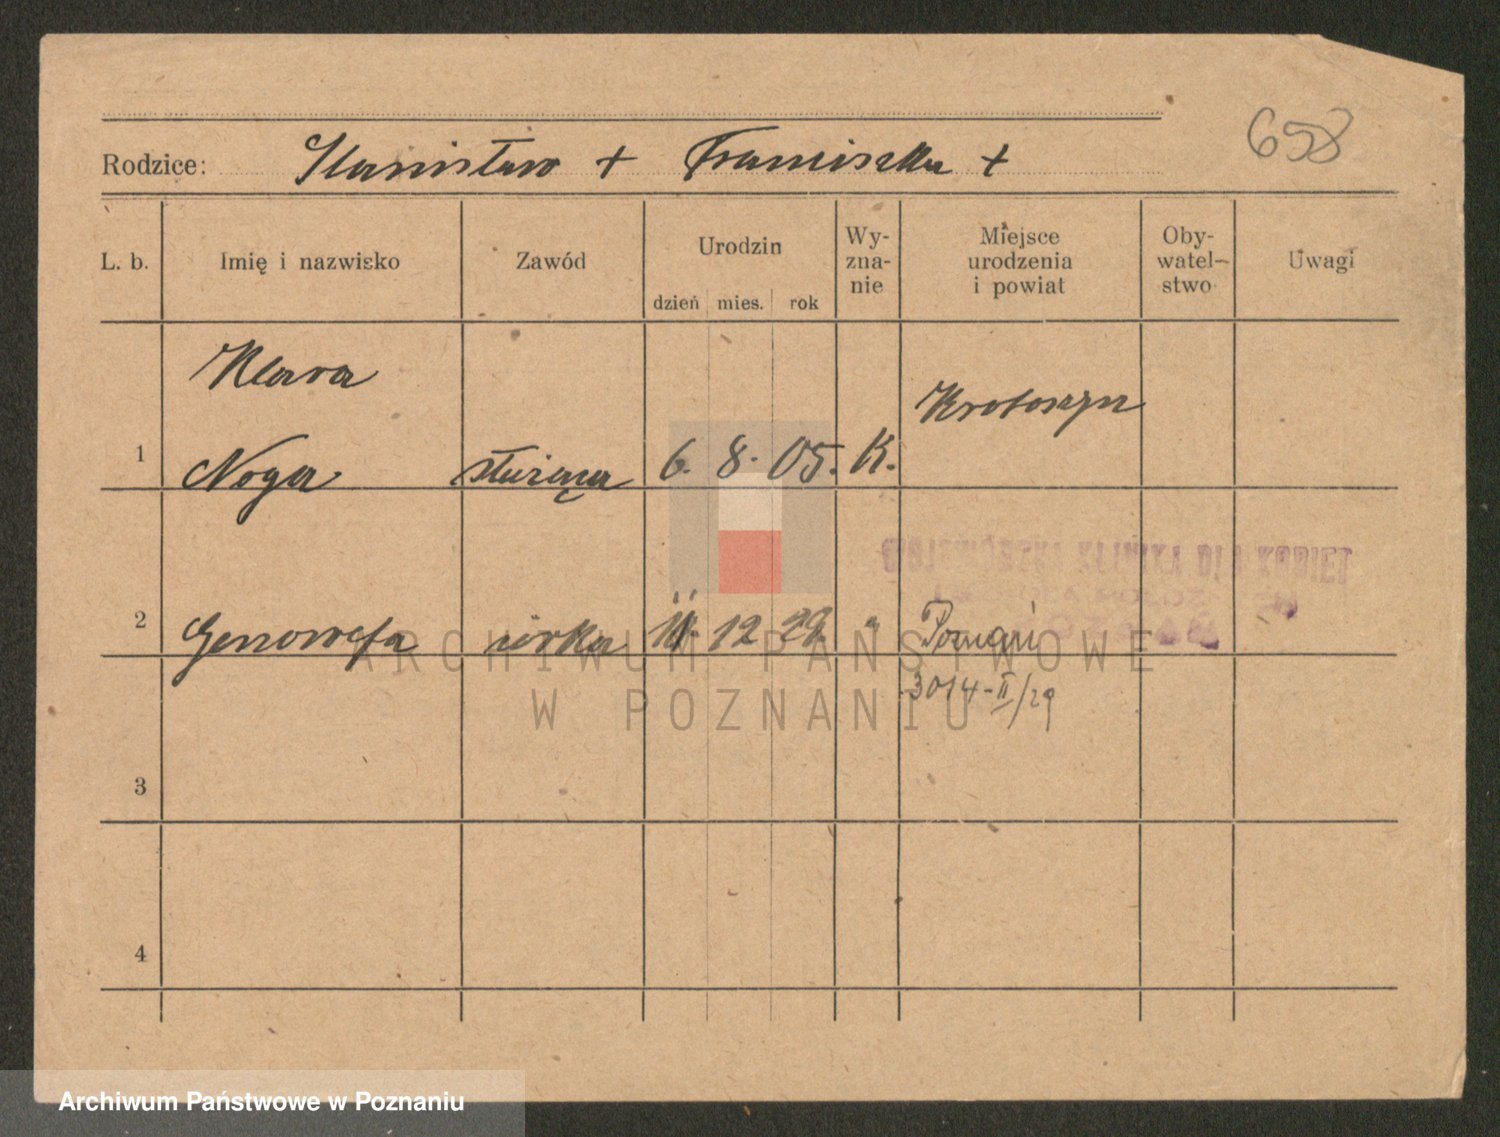 658
Rodzice: Stanisław + Franciszka +
L. b. Imię i nazwisko Zawód Urodzin dzień mies. rok Wy- zna- nie Miejsce urodzenia i powiat Oby- watel- stwo Uwagi
Klara
Krotoszyn
1 Noga służąca 6. 8. 05. K.
KLINIKA DLA KOBIET
2 Genowefa córka 12 29. " Poznań
3014-II/29
3
4
ARCHIWUM PAŃSTWOWE
W POZNANIU
Archiwum Państwowe w Poznaniu